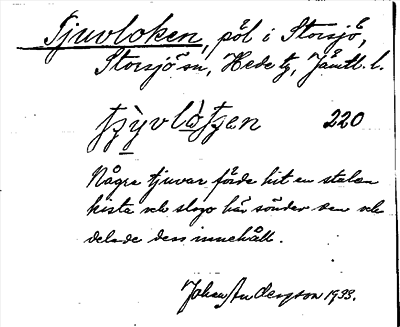 Tjuvloken, pöl i Storsjö,
Storsjö sn, Hede tg, Jämtl. l.
220
Några tjuvar förde hit en stulen
kista och slogo här sönder den och
delade dess innehåll.
Johan Andersson 1933.